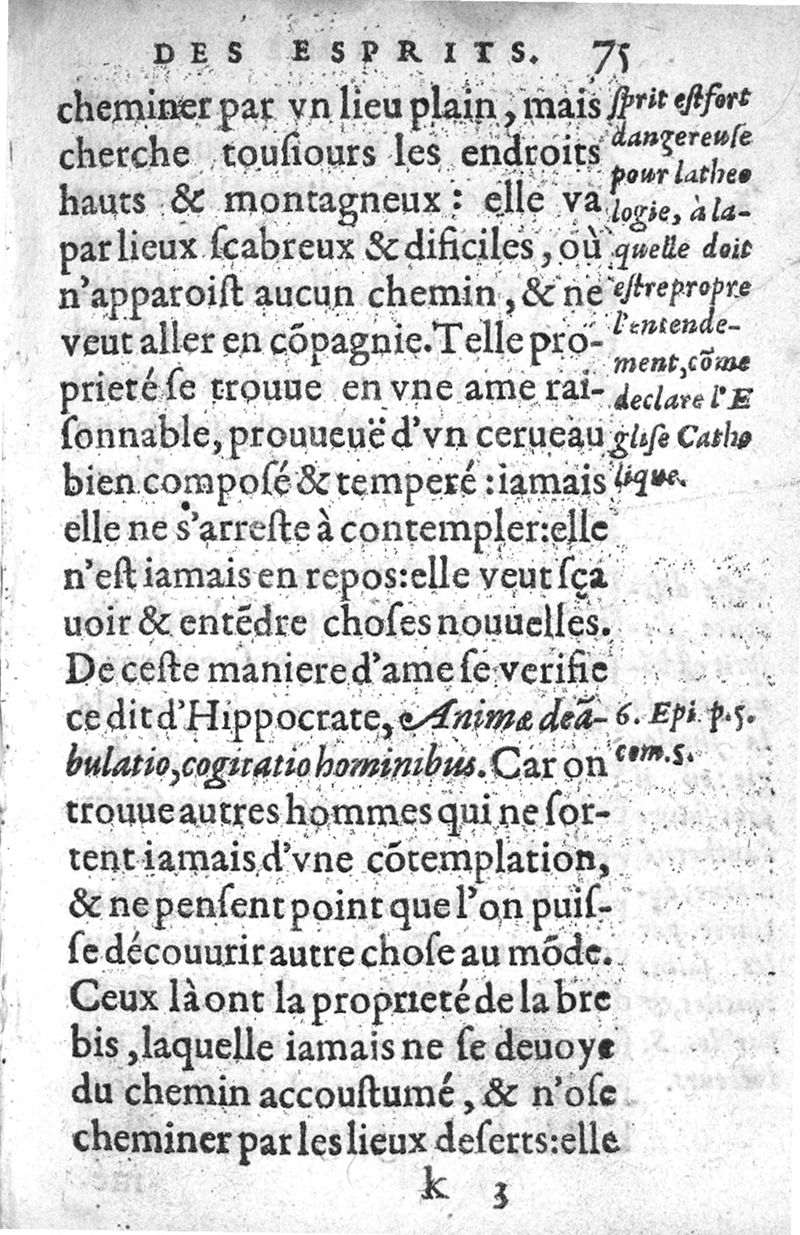 DES ESPRITS. 75
cheminer par vn lieu plain, mais
cherche tousiours les endroits
hauts & montagneux : elle va
par lieux scabreux & dificiles, où
n'apparoist aucun chemin, & ne
veut aller en cõpagnie. Telle pro-
prieté se trouue en vne ame rai-
sonnable, prouueuë d'vn cerueau
bien composé & temperé : iamais
elle ne s'arreste à contempler: elle
n'est iamais en repos: elle veut sça
uoir & entẽdre choses nouuelles.
De ceste maniere d'ame se verifie
ce dit d'Hippocrate, Animæ deã-
bulatio, cogitatio hominibus. Car on
trouue autres hommes qui ne sor-
tent iamais d'vne cõtemplation,
& ne pensent point que l'on puis-
se découurir autre chose au mõde.
Ceux là ont la proprieté de la bre
bis , laquelle iamais ne se deuoye
du chemin accoustumé , & n'ose
cheminer par les lieux deserts: elle
k 3
sprit est fort
dangereuse
pour la theo
logie, à la-
quelle doit
estre propre
l'entende-
ment, cõme
declare l'E
glise Catho
lique.
6. Epi. p. 5.
com. 5.